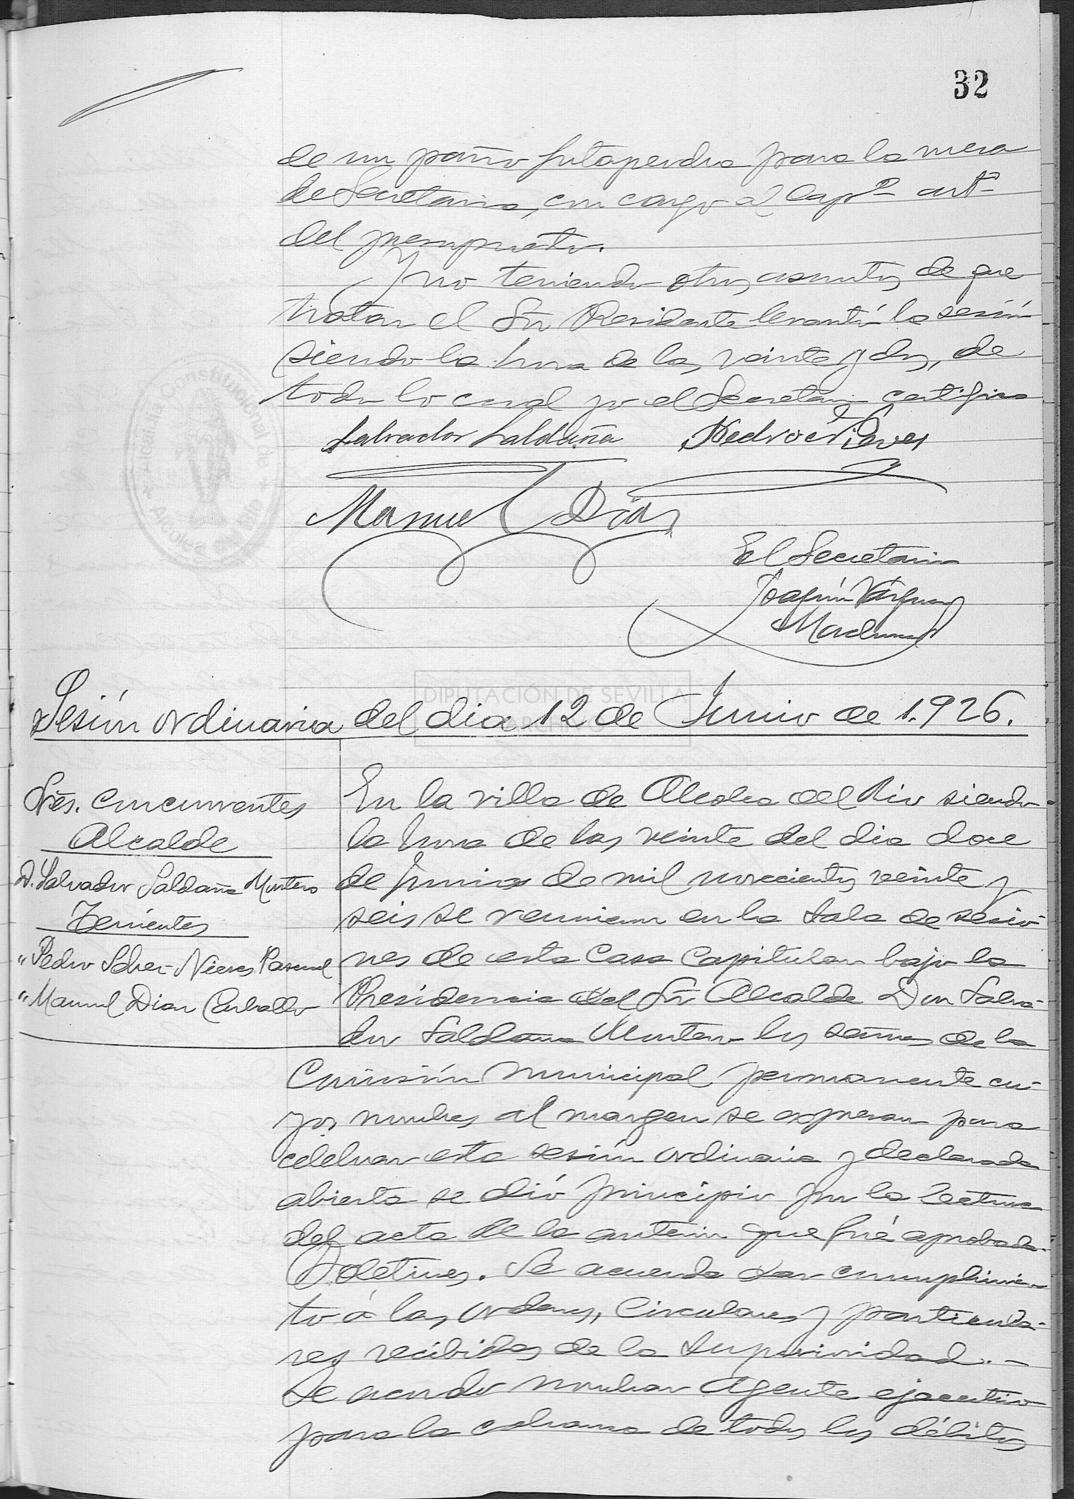 32
de un paño para la mesa
de Secretaria, con cargo al Capº artº
del presupuesto.
Y no teniendo otros asuntos de que
tratar el Sr Presidente levantó la sesión
siendo la hora de las veinte y dos, de
todo lo cual yo el Secretario certifico
Salvador Saldaña Pedro S. Nieves
Manuel Diaz
El Secretario
Joaquín Várquez
Alcaldia Constitucional de
Alcolea del Rio
DIPUTACIÓN DE SEVILLA
ARCHIVO
Sesión ordinaria del dia 12 de Junio de 1.926.
Srês. Concurrentes
Alcalde
D. Salvador Saldaña Montero
Tenientes
" Pedro Schez-Nieves Pascual
" Manuel Diaz Carballo
En la villa de Alcolea del Rio siendo
la hora de las veinte del dia doce
de Junio de mil novecientos veinte y
seis se reunieron en la Sala de sesio-
nes de esta Casa Capitular bajo la
Presidencia del Sr Alcalde Don Salva-
dor Saldaña Montero los señores de la
Comisión Municipal permanente cu-
yos nombres al margen se expresan para
celebrar esta sesión ordinaria y declarada
abierta se dió principio por la lectura
del acta de la anterior que fué aprobada.
Boletines. Se acuerda dar cumplimien-
to á las ordenes, Circulares y particula-
res recibidas de la Superioridad. -
Se acordo nombrar Agente ejecutivo
para la cobranza de todos los débitos